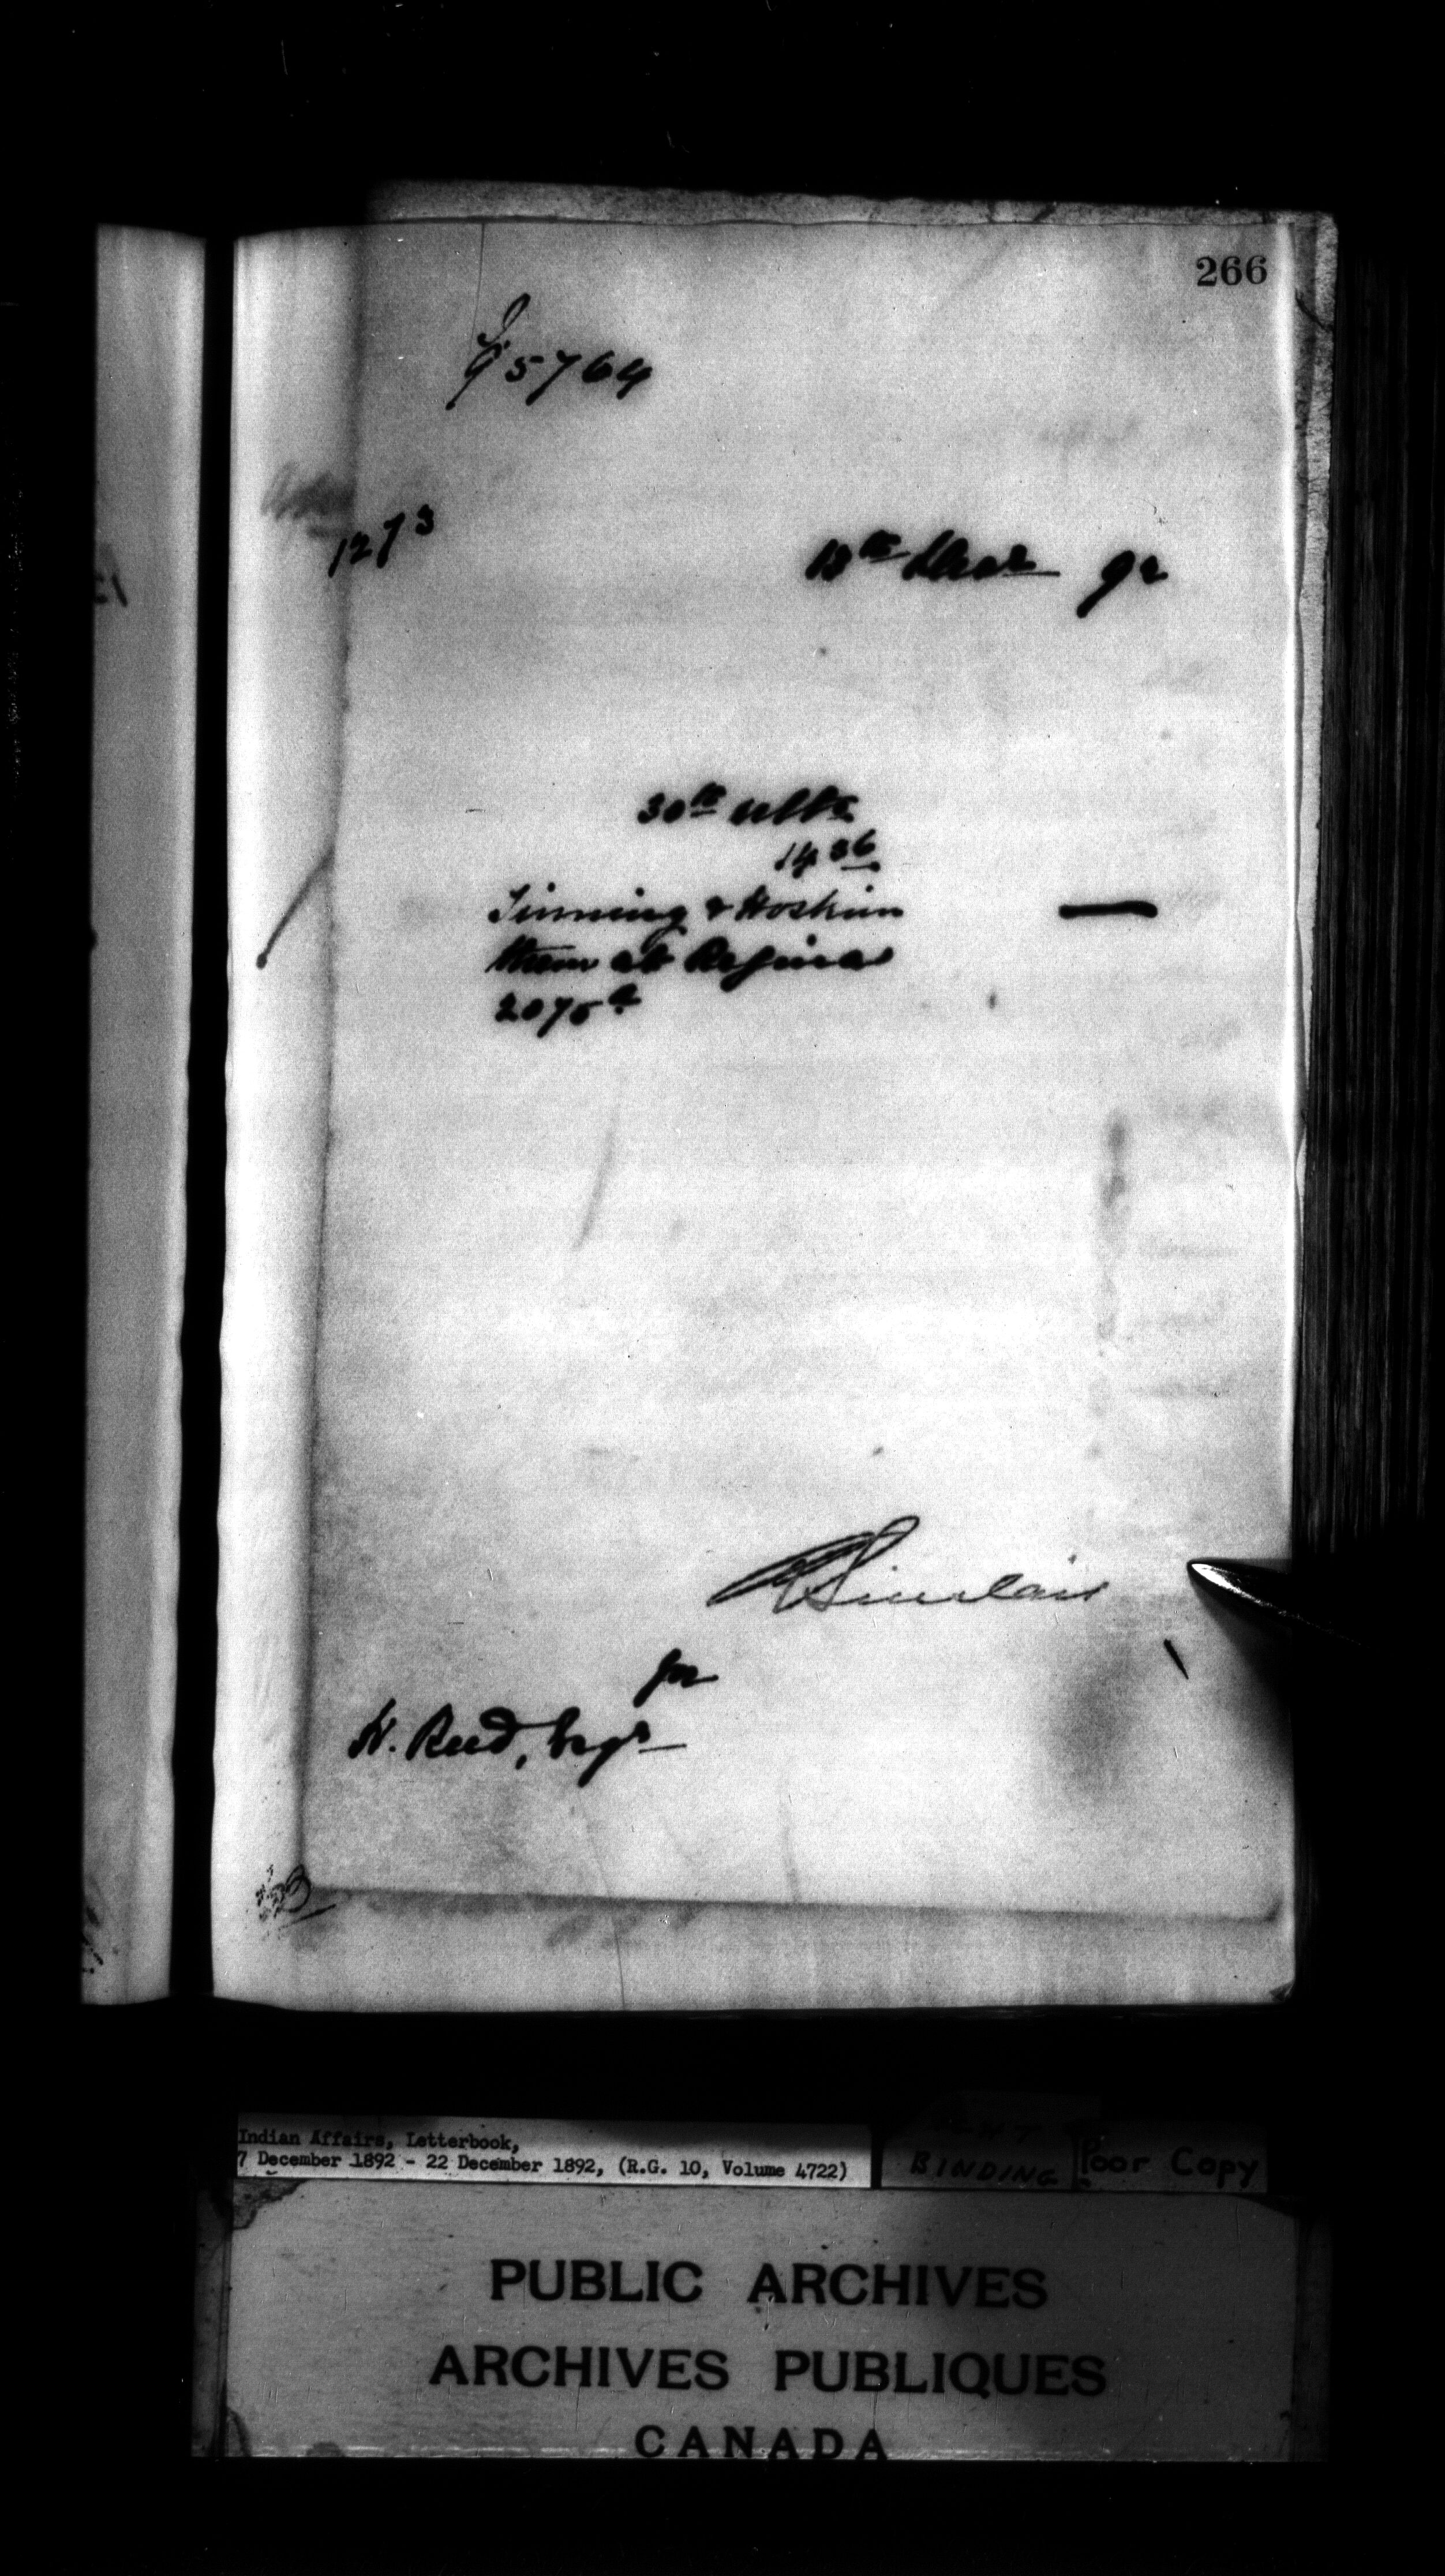 266
95764
1273
13th Decr 92
30th ulto
1436
Tinning & Hoskin
them at Regina
2075
Sinclair
for
H. Reed, Esqr
Indian Affairs, Letterbook,
7 December 1892 - 22 December 1892, (R.G. 10, Volume 4722)
BINDING
Poor Copy
PUBLIC ARCHIVES
ARCHIVES PUBLIQUES
CANADA